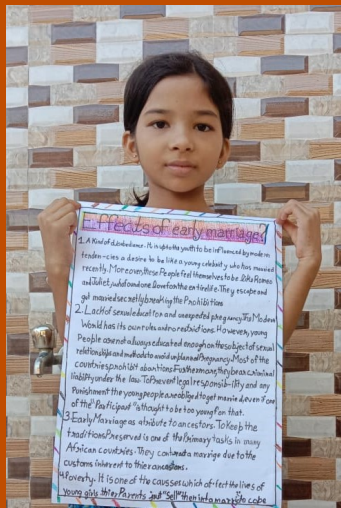 Effects of early marriage?
1. A Kind of disobedience. It is up to the youth to be influenced by modern
tenden-cies a desire to be like a young celebrity who has married
recently. Moreover, these People feel themselves to be like Romeo
and Juliet, who found one Love for the entire life. They escape and
get married secretly breaking the Prohibitions
2. Lack of sexual education and unexpected pregnancy. This Modern
World has its own rules and no restrictions. However, young
People are not always educated enough on the subject of sexual
relationships and methods to avoid unplanned Pregnancy. Most of the
countries prohibit abortions. Furthermore, they bear criminal
liability under the law. To Prevent legal responsibility and any
Punishment the young people are obliged to get married, even if one
of the "Participant" is thought to be too young for that.
3. Early Marriage as atribute to ancestors. To Keep the
traditions Preserved is one of the Primary tasks in many
African countries. They contract a marriage due to the
customs inherent to thier ancestors.
4. Poverty. It is one of the causses which affect the lives of
young girls thier Parents Just "Sell" them into marry to cope